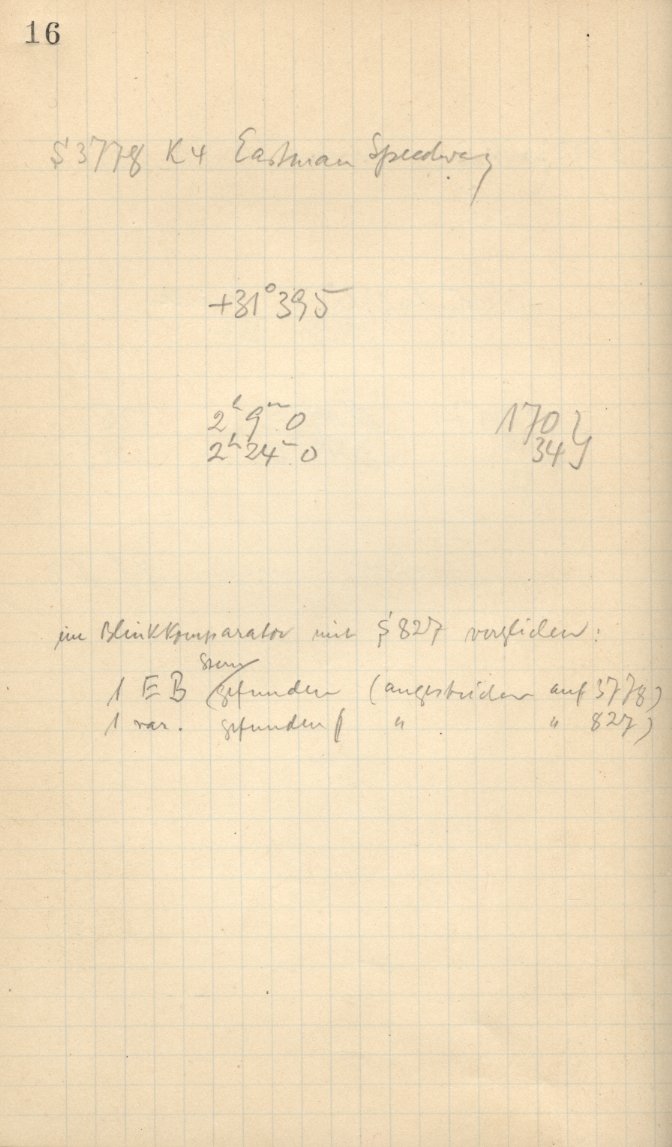 16
S 3778 K4 Eastman Speedway
+31° 395
2ʰ 9ᵐ 0 170 }
2ʰ 24ᵐ 0 34 }
im Blinkkomparator mit S 827 verglichen:
1 EB Stern gefunden (angestrichen auf 3778)
1 var. gefunden ( " " 827)